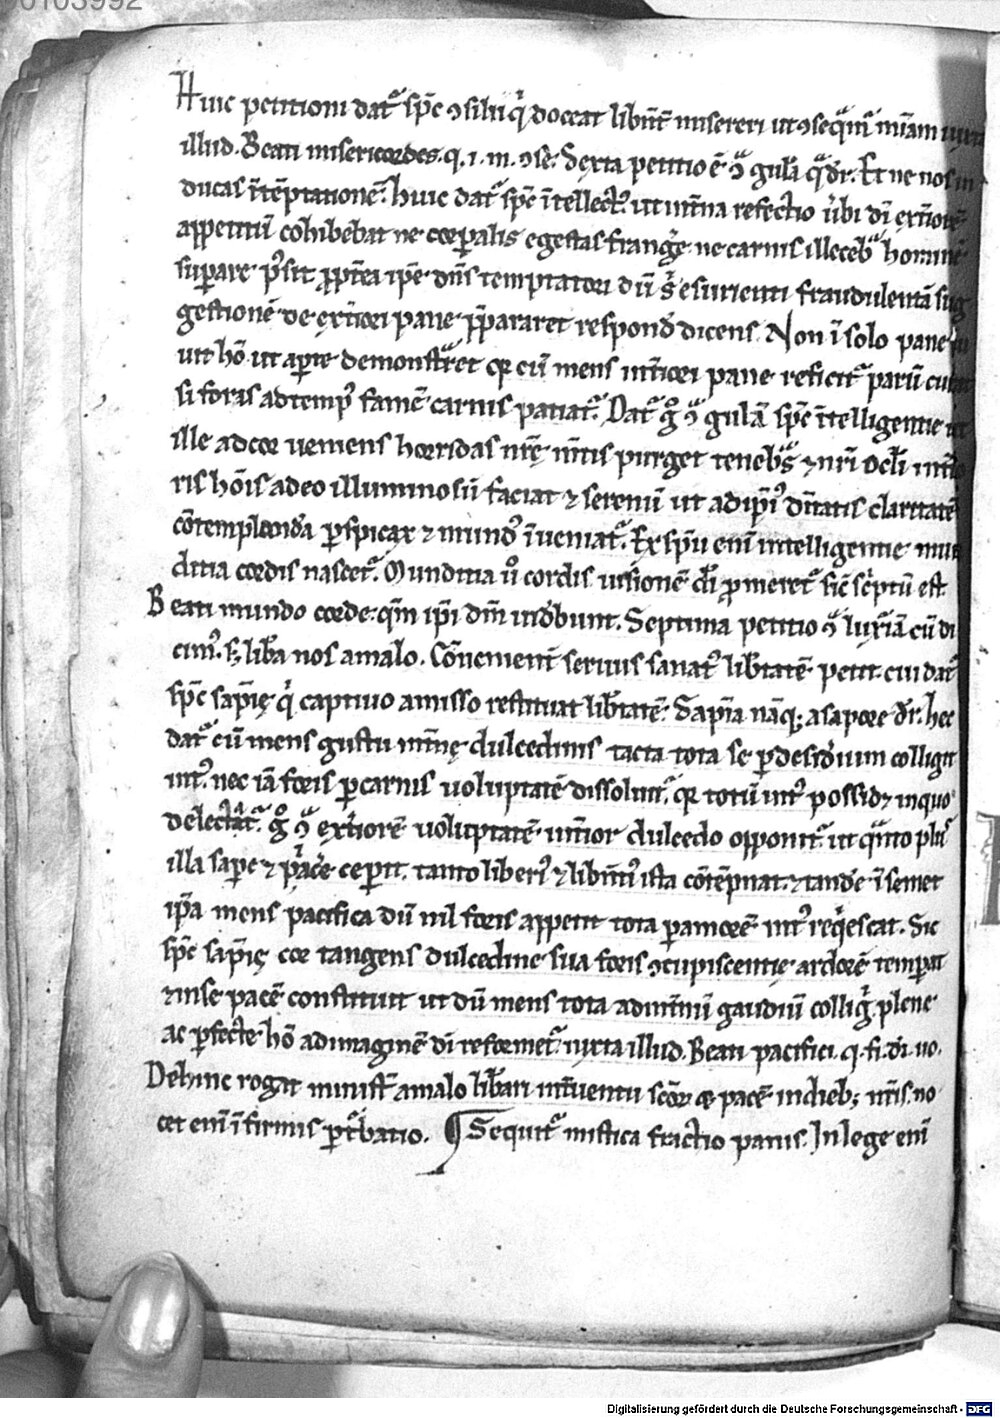 00103992
Huic petitioni dat᷒ sp̄c ↄsilii q̇ doceat libēt̄ misereri ut ↄseqᷓm᷒ mīam iuxta
illud. Beati misericordes. q. i. m. ↄsē. Sexta petitio ē ↄᷓ gulā qᷓ dr̄. Et ne nos in
ducas ī tēptationē. huic dat᷒ sp̄c ītellect᷒. ut int̄na refectio ūbi dī ext̄iorē
appetitū cohibebat ne corp̱alis egestas frang̱e ne carnis illecebᷓ hominē
sup̱are p̄sit. ꝓpt̄ea ip̄e dn̄s temptatori dū sᷓ esurienti fraudulentā sug
gestionē de ext̄iori pane p̄pararet respond̄ dicens. Non ī solo pane ui
uit hō. ut ap̱te demonstᷓret qđ cū mens int̄iori pane reficit᷒ parū curat
si foris ad temp᷒ famē carnis patiat᷒. Dat᷒ gͦ ↄᷓ gulā sp̄c ītelligentie ut
ille ad cor ueniens horridas nr̄ę mīt̄is purget tenebᷓs ⁊ nr̄i ocl̄i int̄io
ris hōis adeo illuminosū faciat ⁊ serenū ut ad ip̄i᷒ d̄iītatis claritatē
cōtemplanda ꝑspicax ⁊ mund᷒ īueniat᷒. Ex sp̄u enī intelligentie mun
ditia cordis nascet᷒. Munditia ů cordis uisionē dī ꝓmeret᷒ sic̄ sc̄ptū est.
Beati mundo corde. qm̄ ip̄i dm̄ uidebunt. Septima petitio ↄᷓ luxͥiā cū di
cim᷒. s; libͣa nos a malo. Cōuenient̄ seruus sanat᷒ lib̄tatē petit. cui dat᷒
sp̄c sap̄ię q̇ captiuo amisso restituat lib̄tatē. Sap̄ia nāq; a sapore dr̄. hec
dat᷒ cū mens gustu int̄nę dulcedinis tacta tota se ꝑ desideriū colligit
int᷒. nec iā foris ꝑ carnis uoluptatē dissoluit᷒. qꝛ totū int᷒ possid; in quo
delectat᷒. gͦ ↄᷓ ext̄iorē uoluptatē int̄ior dulcedo opponit᷒. ut qᷓnto plus
illa sape ⁊ placͤe ceꝑit. tanto liberi᷒ ⁊ libēti᷒ ista cōtēpnat. ⁊ tandē ī semet
ip̄a mens pacifica dū nil foris appetit tota ꝑ amorē int᷒ reqͥescat. Sic
sp̄c sap̄ię cor tangens dulcedine sua foris ↄcupiscentie ardorē temꝑat
⁊ in se pacē constituit ut dū mens tota ad int̄nū gaudiū colligͥ. plene
ac ꝑfecte hō ad imaginē dī reformet᷒. iuxta illud. Beati pacifici. q. fi. dī. uo.
Dehinc rogat minist̄ a malo libͣari int̄uentu scōꝝ ⁊ pacē in dieb; nr̄is. no
cet enī īfirmis ꝑt᷒batio. ¶ Sequit᷒ mistica fractio panis. In lege enī
Digitalisierung gefördert durch die Deutsche Forschungsgemeinschaft - DFG